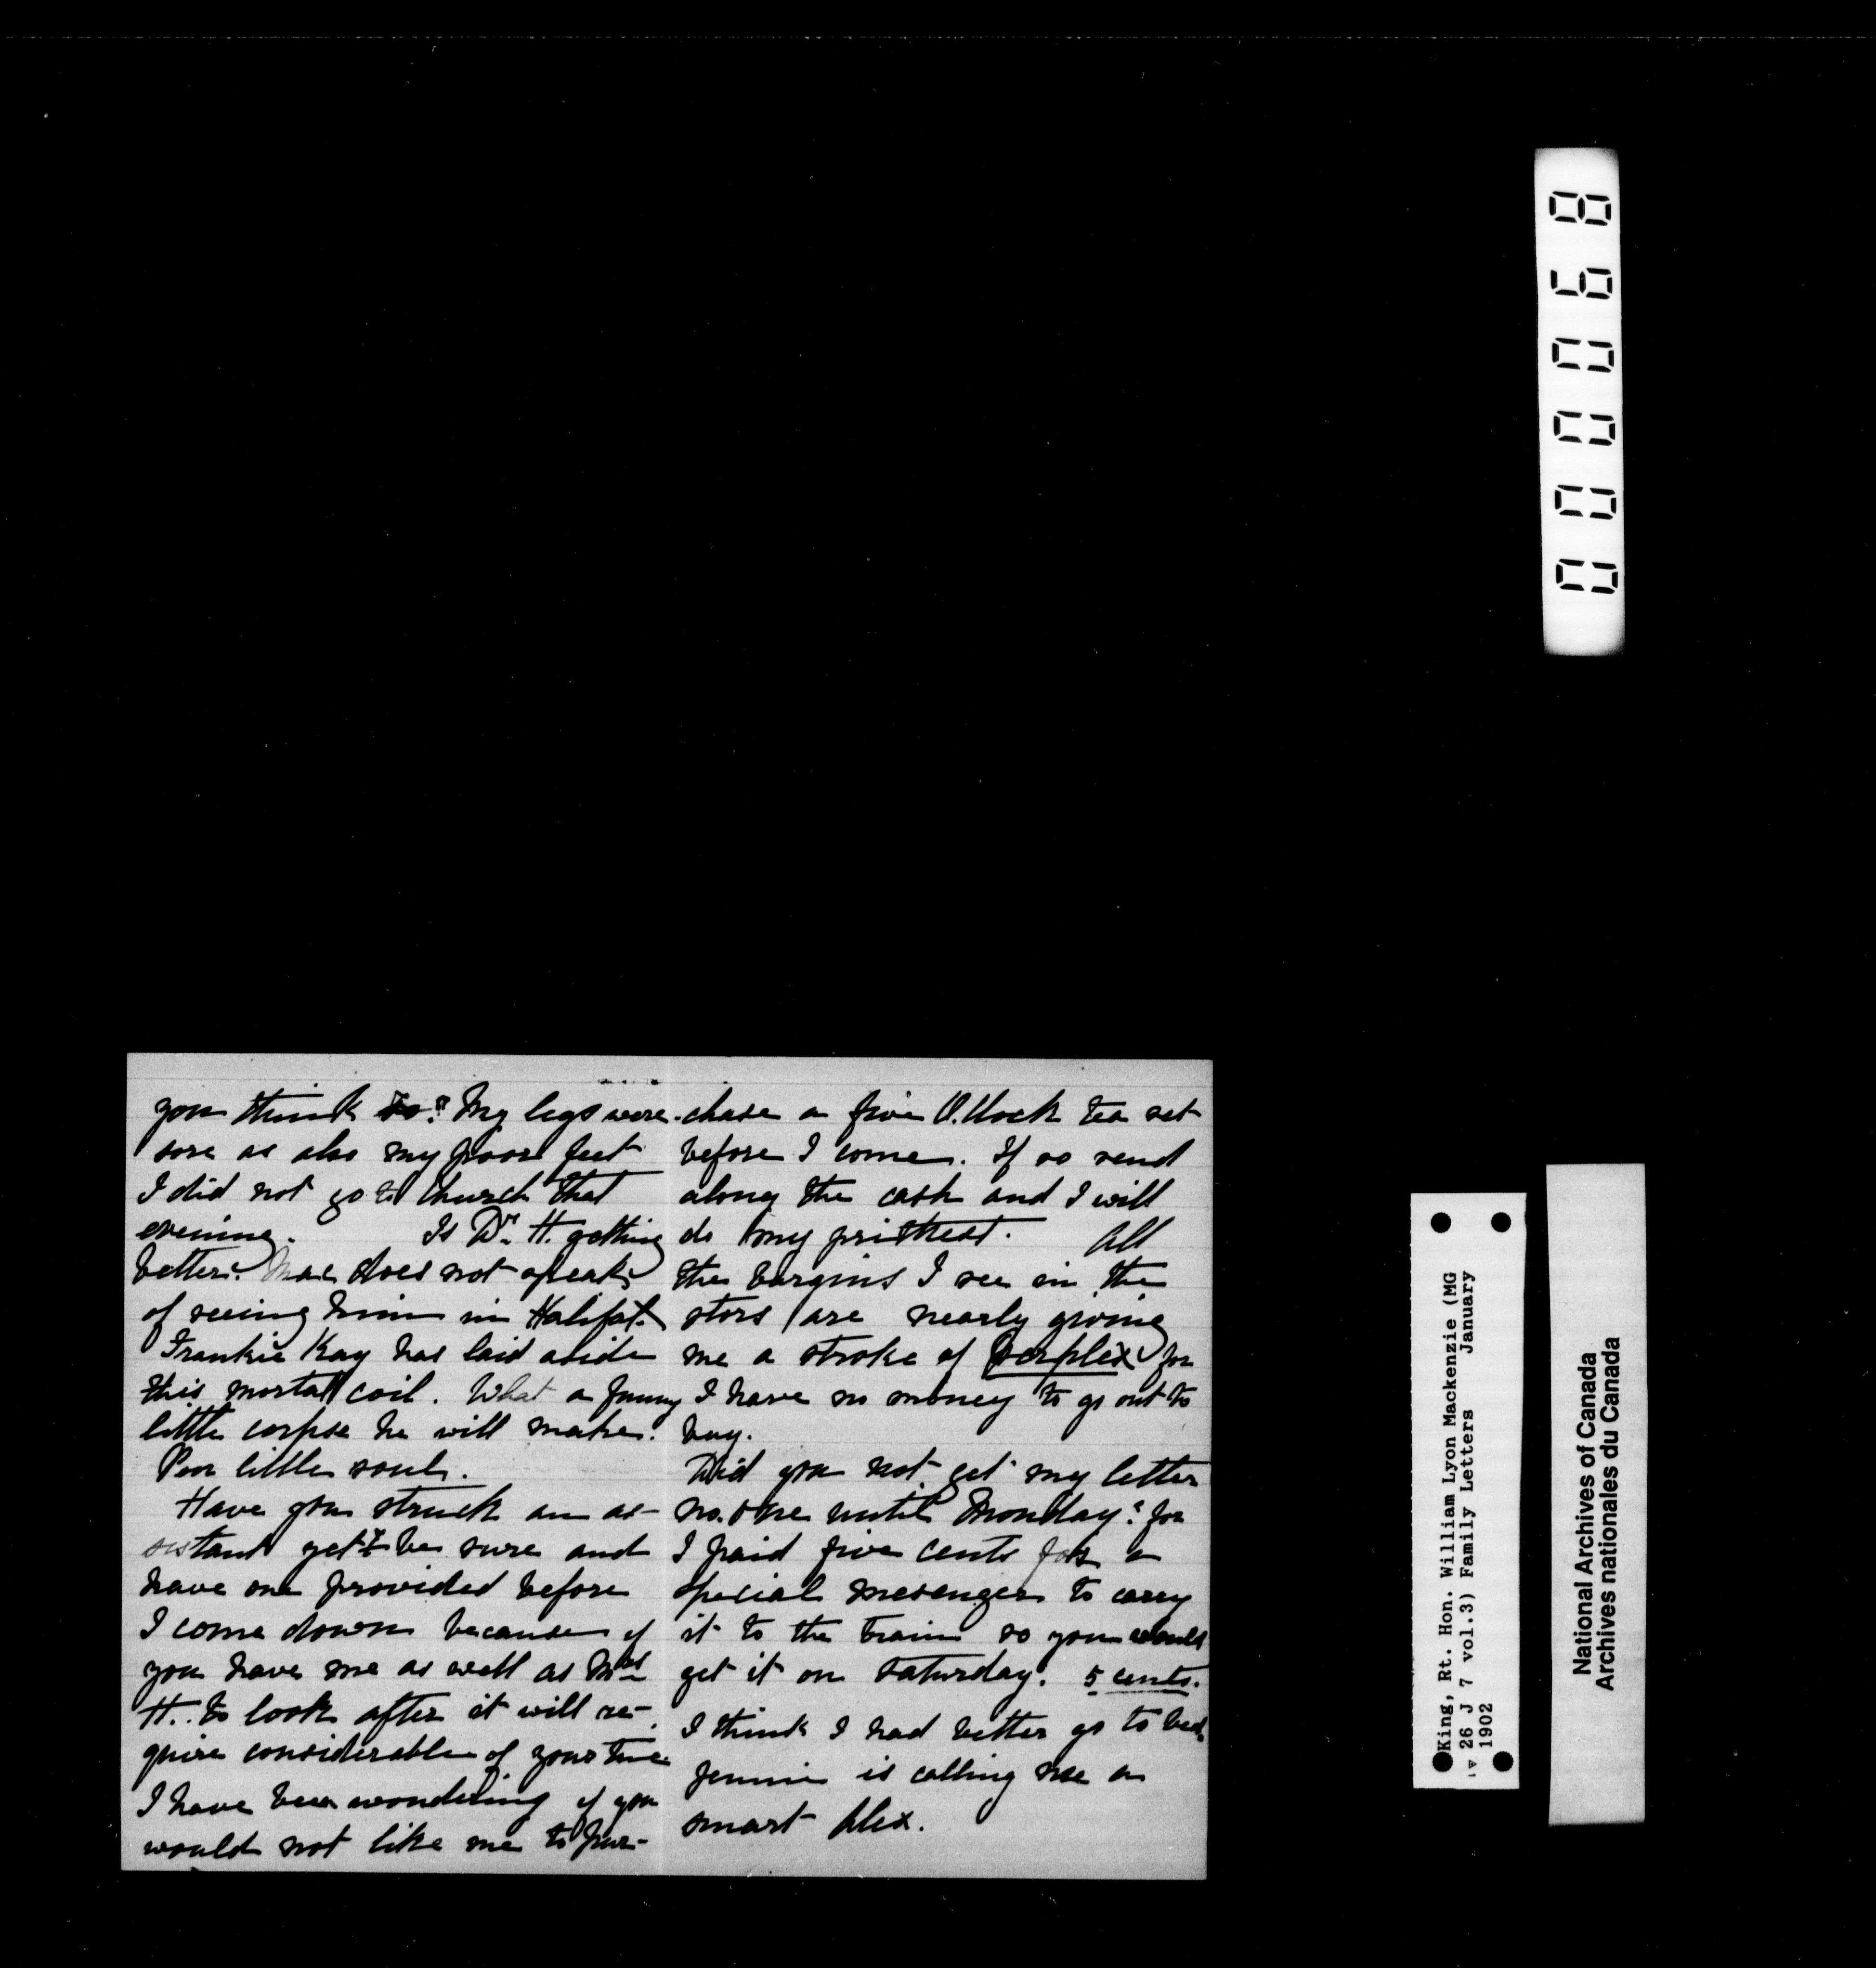 you think so? My legs were
sore as also my poor feet
I did not go to Church that
evening. Is Dr. H. getting
better. Mac does not speak
of seeing him in Halifax.
Frankie Kay has laid aside
this mortal coil. What a funny
little corpse he will make.
Poor little soul.
Have you struck an as-
sistant yet? be sure and
have one provided before
I come down because if
you have me as well as Mrs
H. to look after it will re-
quire considerable of your time
I have been wondering if you
would not like me to pur-
chase a five O.Clock tea set
before I come. If so send
along the cash and I will
do my prittiest. All
the bargins I see in the
stors are nearly giving
me a stroke of Perplex for
I have no money to go out to
buy.
Did you not get my letter
no. one until Monday? for
I paid five cents for a
special mesenger to carry
it to the train so you would
get it on Saturday. 5 cents.
I think I had better go to bed.
Jennie is calling me a
smart Alex.
000068
King, Rt. Hon. William Lyon Mackenzie (MG
26 J 7 vol.3) Family Letters January
1902
National Archives of Canada
Archives nationales du Canada